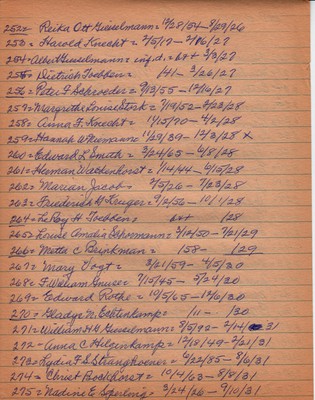 252 = Reika Ott Gieselmann = 12/28/54 - 9/29/26
253 = Harold Knecht = 2/5/19 - 2/16/27
254 = Albert Gieselmann inf.d. = b+d 3/3/27
255 = Dietrich Tobben = /41 - 3/26/27
256 = Peter F. Schroeder = 9/13/55 - 12/16/27
257 = Margretha Louise Stork = 7/19/52 - 2/23/28
258 = Anna F. Knecht = 11/15/70 - 4/2/28
259 = Hannah W. = 11/29/39 - 12/3/28 x
260 = Edward L Smith = 3/24/65 - 6/8/28
261 = Herman Wackenhorst = 1/14/44 - 6/15/28
262 = Marian Jacob = 2/5/26 - 7/23/28
263 = Friederich H Kruger = 9/2/50 - 10/1/28
264 = Le Roy H Tobben; b+d /28
265 = Louise Amalia Schormann = 3/12/50 - 7/21/29
266 = Metta C. Brinkman = /58 - /29
267 = Mary Vogt = 3/21/59 - 4/5/30
268 = F. William Gruse = 7/15/45 - 5/24/30
269 = Edward Rothe = 10/5/65 - 12/6/30
270 = Gladys N. Echtenkamp = /11 - /30
271 = William H H Gieselmann = 5/5/92 - 2/14/31
272 = Anna C. Hilgenkamp = 12/18/49 - 2/21/31
273 = Lydia F. S. Stranghoener = 6/22/85 - 5/6/31
274 = Christ Bockhorst = 10/4/63 - 8/8/31
275 = Nadine E. Sperling = 3/24/26 - 9/10/31